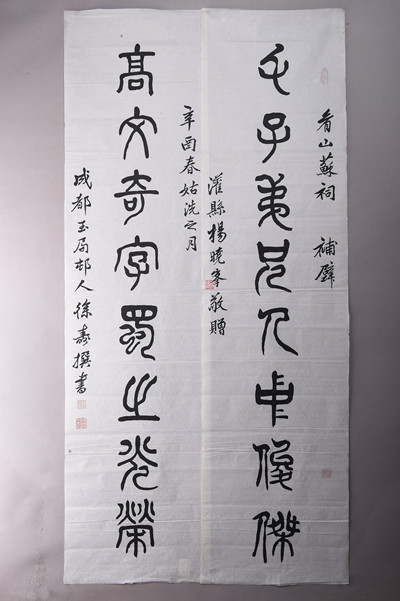 眉山蘇祠 補壁
父子弟兄人中俊傑
灌縣楊曉峯敬贈
辛酉春姑洗之月
高文奇字蜀之光榮
成都玉局邨人徐壽撰書